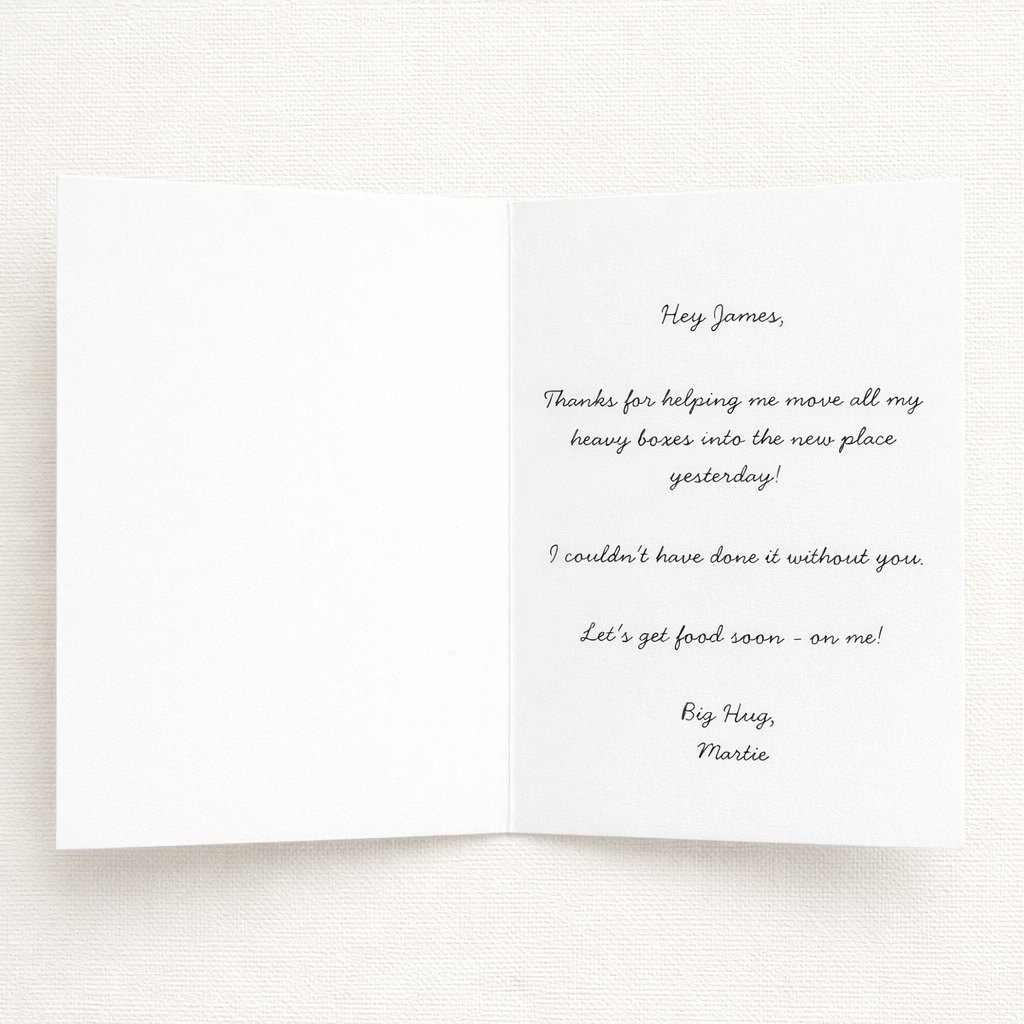 Hey James,
Thanks for helping me move all my
heavy boxes into the new place
yesterday!
I couldn't have done it without you.
Let's get food soon - on me!
Big Hug,
Martie